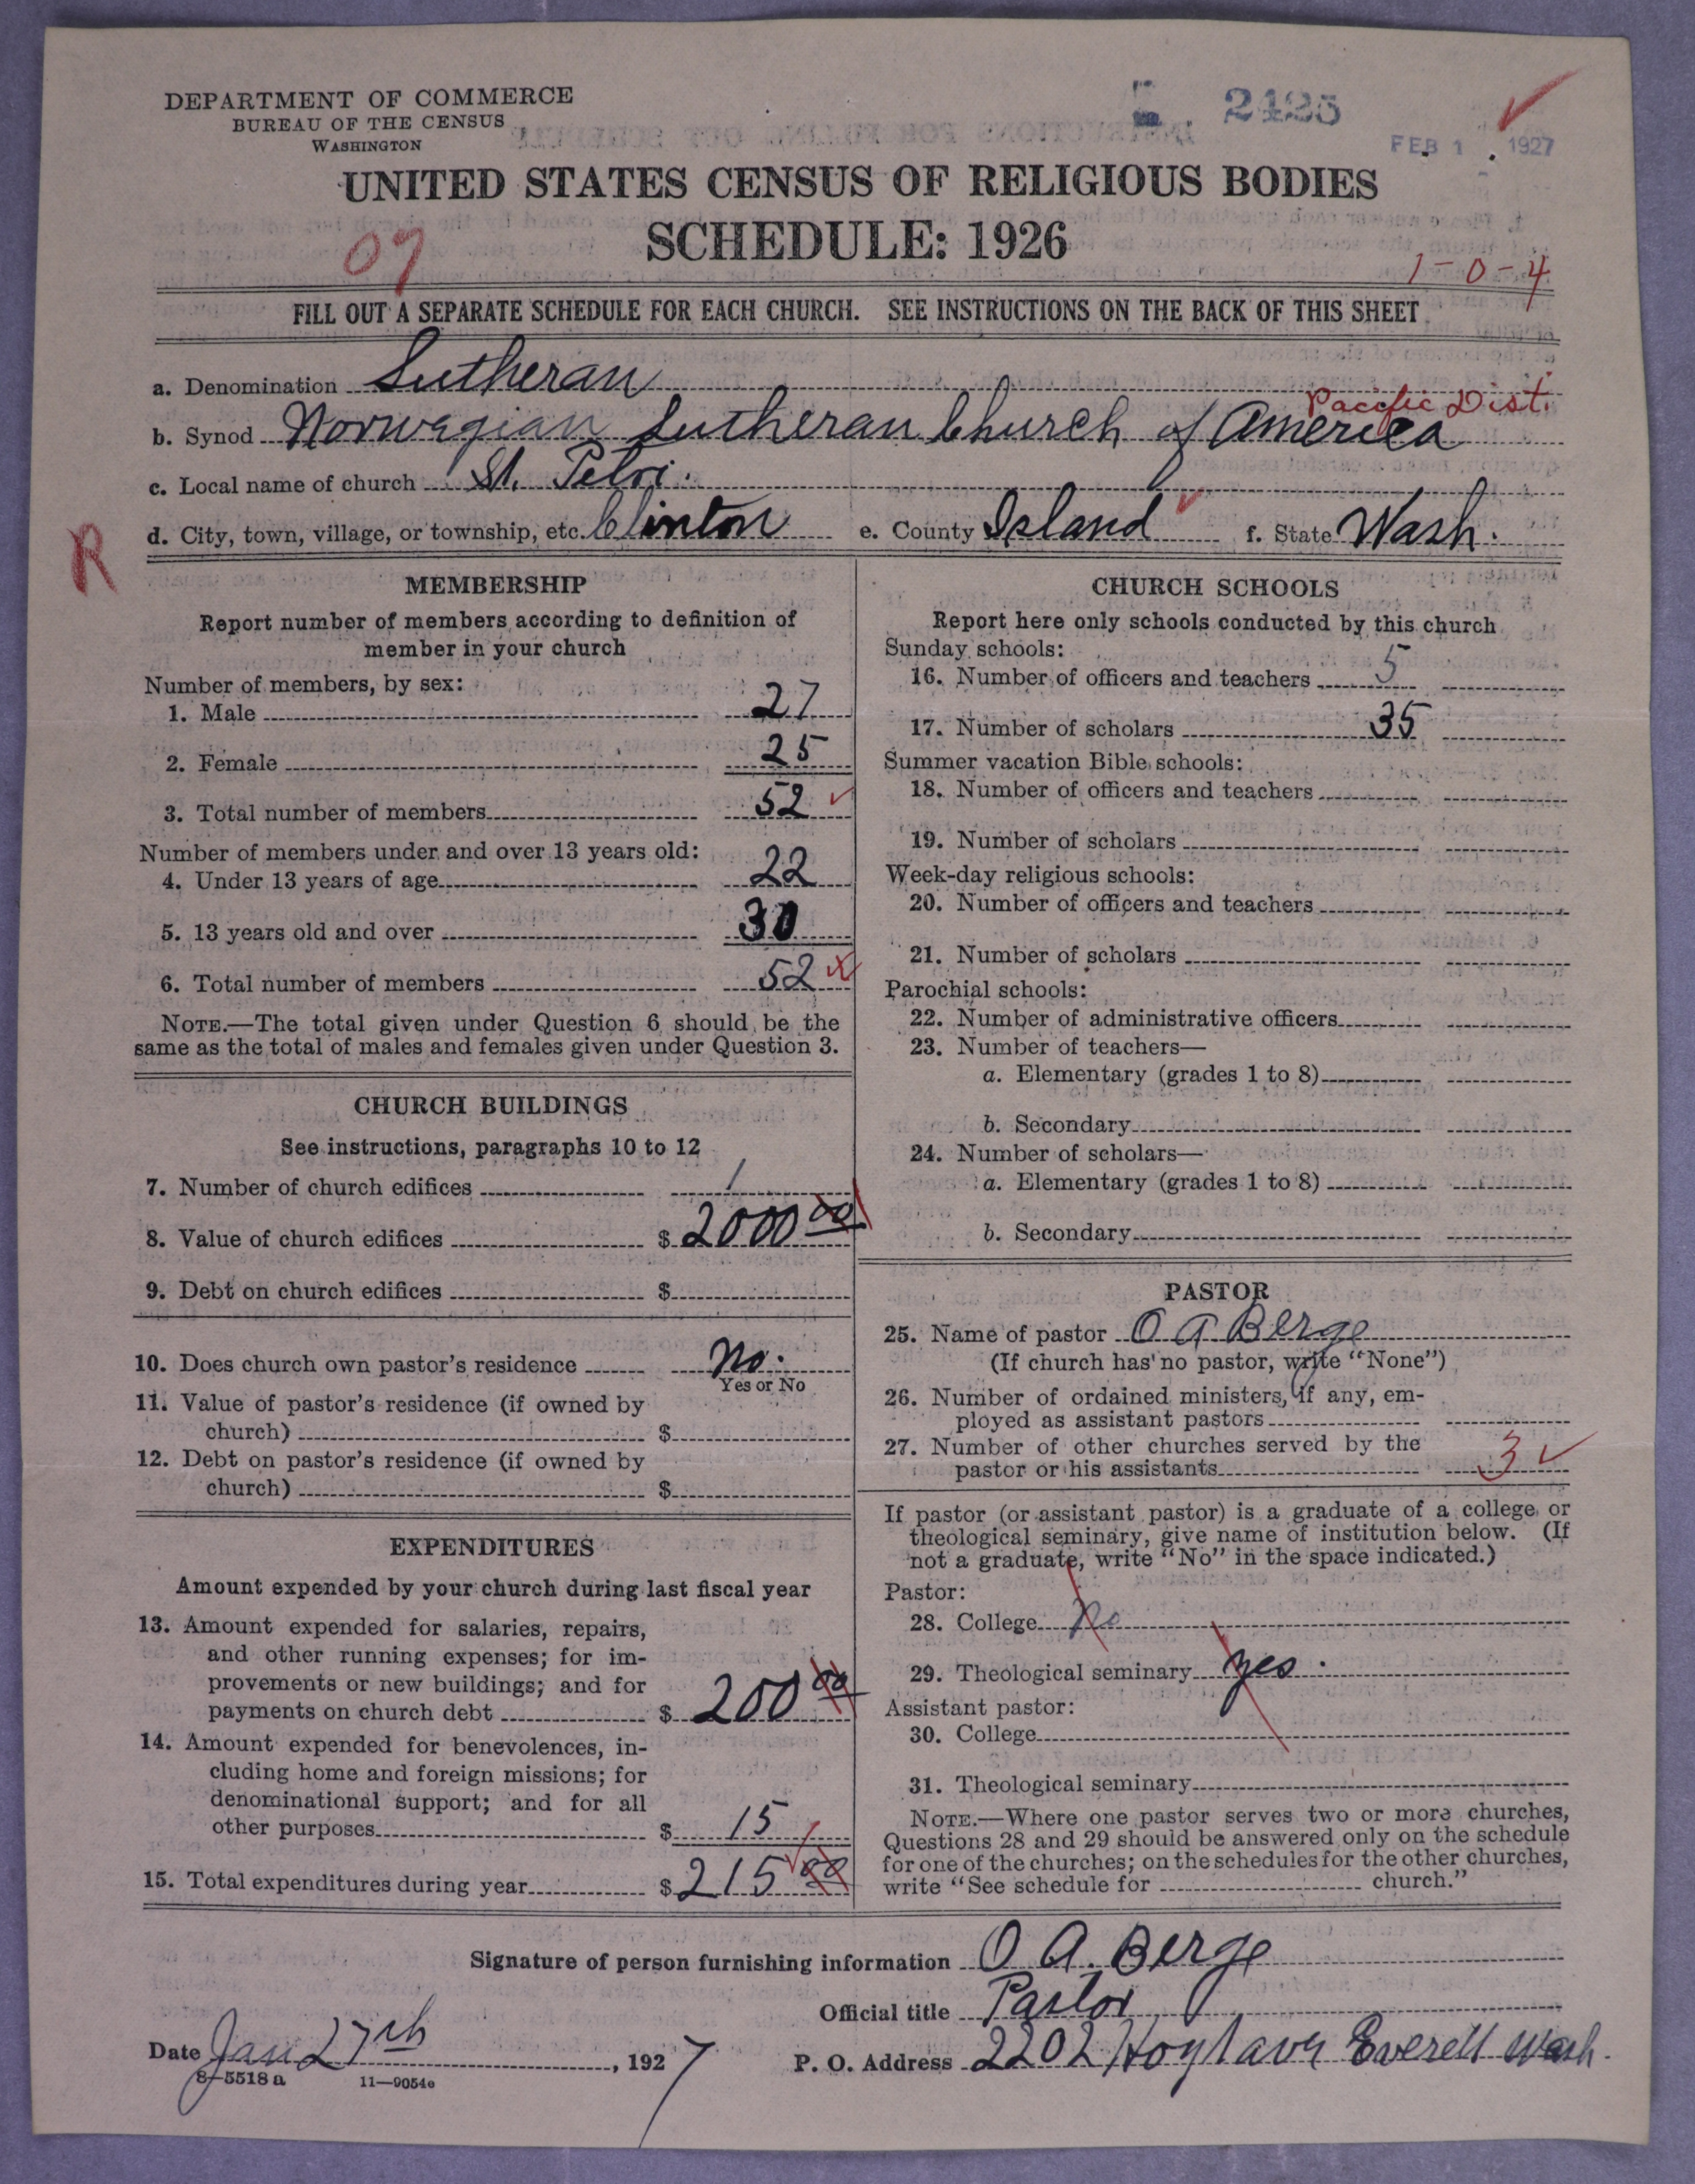 DEPARTMENT OF COMMERCE
BUREAU OF THE CENSUS
WASHINGTON
2425
FEB 1 1927
UNITED STATES CENSUS OF RELIGIOUS BODIES
SCHEDULE: 1926
07
1-0-4
FILL OUT A SEPARATE SCHEDULE FOR EACH CHURCH. SEE INSTRUCTIONS ON THE BACK OF THIS SHEET
a. Denomination Lutheran
Pacific Dist.
b. Synod Norwegian Lutheran Church of America
c. Local name of church St. Petri.
d. City, town, village, or township, etc. Clinton e. County Island f. State Wash.
R
MEMBERSHIP
Report number of members according to definition of
member in your church
Number of members, by sex:
1. Male 27
2. Female 25
3. Total number of members 52
Number of members under and over 13 years old:
4. Under 13 years of age 22
5. 13 years old and over 30
6. Total number of members 52
NOTE.—The total given under Question 6 should be the
same as the total of males and females given under Question 3.
CHURCH BUILDINGS
See instructions, paragraphs 10 to 12
7. Number of church edifices 1
8. Value of church edifices $ 2000 00
9. Debt on church edifices $
10. Does church own pastor's residence No.
Yes or No
11. Value of pastor's residence (if owned by
church) $
12. Debt on pastor's residence (if owned by
church) $
EXPENDITURES
Amount expended by your church during last fiscal year
13. Amount expended for salaries, repairs,
and other running expenses; for im-
provements or new buildings; and for
payments on church debt $ 200 00
14. Amount expended for benevolences, in-
cluding home and foreign missions; for
denominational support; and for all
other purposes $ 15
15. Total expenditures during year $ 215 00
CHURCH SCHOOLS
Report here only schools conducted by this church
Sunday schools:
16. Number of officers and teachers 5
17. Number of scholars 35
Summer vacation Bible schools:
18. Number of officers and teachers
19. Number of scholars
Week-day religious schools:
20. Number of officers and teachers
21. Number of scholars
Parochial schools:
22. Number of administrative officers
23. Number of teachers—
a. Elementary (grades 1 to 8)
b. Secondary
24. Number of scholars—
a. Elementary (grades 1 to 8)
b. Secondary
PASTOR
25. Name of pastor O A Berge
(If church has no pastor, write "None")
26. Number of ordained ministers, if any, em-
ployed as assistant pastors
27. Number of other churches served by the
pastor or his assistants 3
If pastor (or assistant pastor) is a graduate of a college or
theological seminary, give name of institution below. (If
not a graduate, write "No" in the space indicated.)
Pastor:
28. College No
29. Theological seminary Yes.
Assistant pastor:
30. College
31. Theological seminary
NOTE.—Where one pastor serves two or more churches,
Questions 28 and 29 should be answered only on the schedule
for one of the churches; on the schedules for the other churches,
write "See schedule for church."
Signature of person furnishing information O A. Berge
Official title Pastor
Date Jan 27th, 1927
P. O. Address 2202 Hoyt ave Everett Wash.
8—5518 a 11—9054e